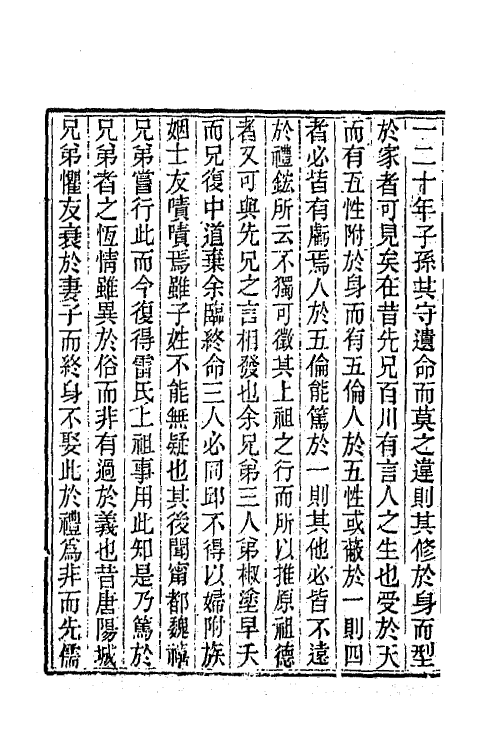 一二十年子孫其守遺命而莫之違則其修於身而型
於家者可見矣在昔先兄百川有言人之生也受於天
而有五性附於身而有五倫人於五性或蔽於一則四
者必皆有虧焉人於五倫能篤於一則其他必皆不遠
於禮鋐所云不獨可徵其上祖之行而所以推原祖德
者又可與先兄之言相發也余兄弟三人弟椒塗早夭
而兄復中道棄余臨終命三人必同邱不得以婦附族
姻士友嘖嘖焉雖子姓不能無疑也其後聞甯都魏禧
兄弟嘗行此而今復得雷氏上祖事用此知是乃篤於
兄弟者之恆情雖異於俗而非有過於義也昔唐陽城
兄弟懼友衰於妻子而終身不娶此於禮為非而先儒